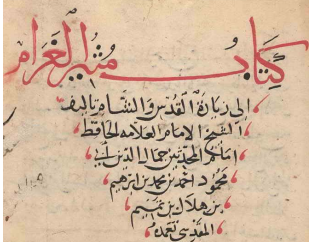 كتاب مثير الغرام
الى زيارة القدس والشام تاليف
الشيخ الامام العلامه الحافظ
امام المحدثين جمال الدين ابي
محمود احمد بن محمد بن ابرهيم
بن هلال بن تميم
المقدسي تغمده